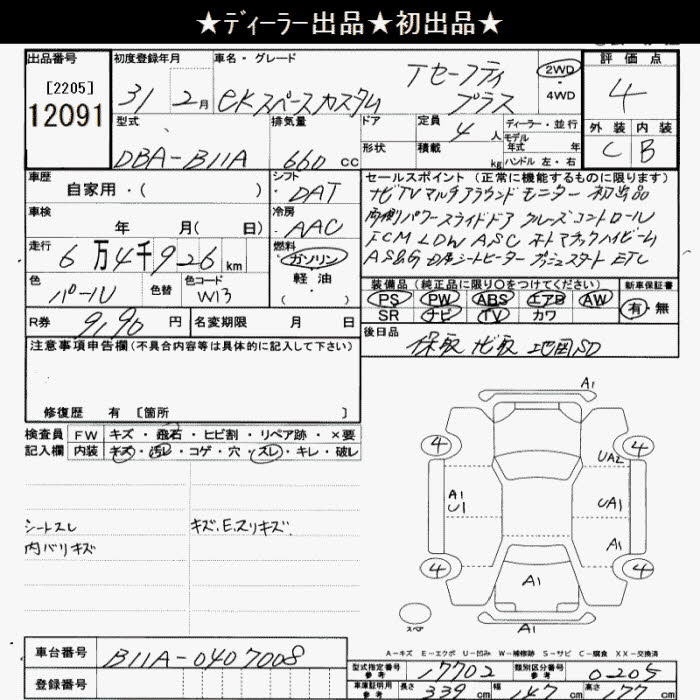 ★ディーラー出品★初出品★
出品番号
[2205]
12091
初度登録年月
31 2月
車名・グレード
eKスペースカスタム Tセーフティ プラス
2WD
4WD
評価点
4
外装 内装
C B
型式
DBA-B11A
排気量
660 cc
ドア
形状
定員
4 人
積載
kg
ディーラー・並行
モデル
年式 年
ハンドル 左・右
車歴
自家用・( )
シフト
DAT
車検
年 月( 日)
冷房
AAC
走行
6万4千926 km
燃料
ガソリン
軽油
・( )
色
パール
色替
色コード
W13
R券
9,190 円
名変期限 月 日
セールスポイント(正常に機能するものに限ります)
ナビTV マルチアラウンドモニター 初出品
両側パワースライドドア クルーズコントロール
FCM LDW ASC オートマチックハイビーム
AS&G D席シートヒーター プッシュスタート ETC
装備品(純正品に限り○をつけてください)
PS PW ABS エアB AW
SR ナビ TV カワ
新車保証書
有・無
後日品
保取 ナビ取 地図SD
注意事項申告欄(不具合内容等は具体的に記入して下さい)
修復歴 有 [箇所 ]
検査員
記入欄
FW キズ・飛石・ヒビ割・リペア跡・×要
内装 キズ・汚レ・コゲ・穴・スレ・キレ・破レ
シートスレ
内バリキズ
キズ.E.スリキズ
A1
4 4
UA2
A1
U1
UA1
A1
4 4
A1
スペア
A1
A-キズ E-エクボ U-凹み W-補修跡 S-サビ C-腐食 XX-交換済
車台番号
B11A-0407008
登録番号
型式指定番号
参考
17702
類別区分番号
参考
0205
車庫証明用
参考
長さ 339 cm 幅 147 cm 高さ 177 cm